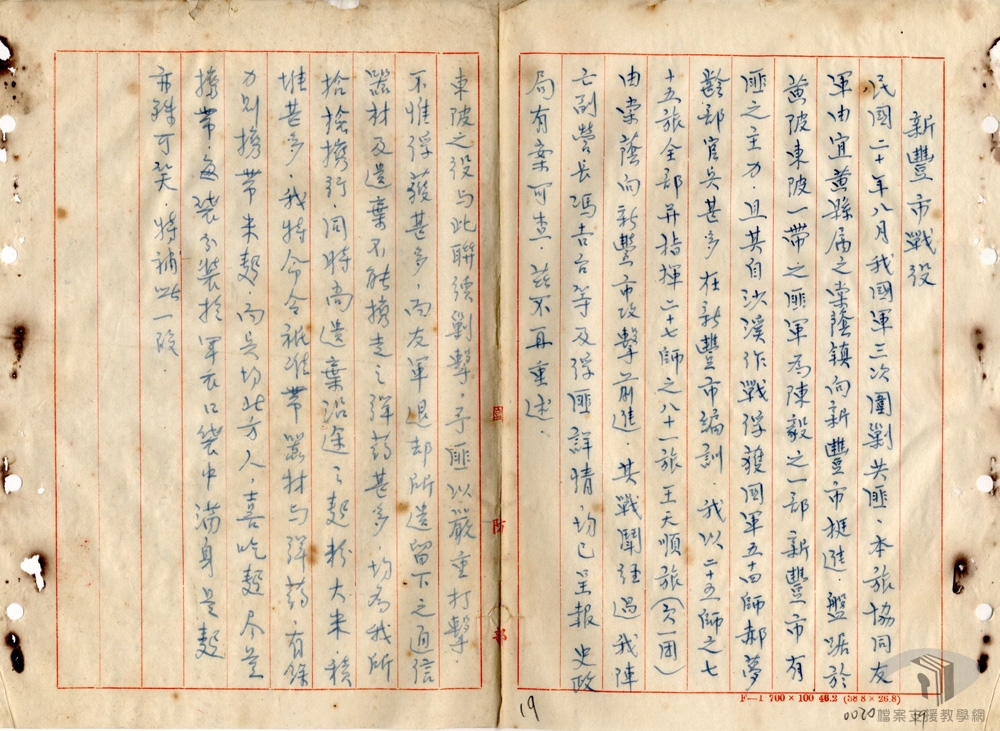 新豐市戰役
民國二十年八月我國軍三次圍剿共匪．本旅協同友
軍由宜黃縣屬之棠蔭鎮向新豐市挺進．盤踞於
黃陂東陂一帶之匪軍為陳毅之一部新豐市有
匪之主力．且其自沙溪作戰俘獲國軍五十四師郝夢
齡部官兵甚多在新豐市編訓．我以二十五師之七
十五旅全部并指揮二十七師之八十一旅王天順旅(欠一團)
由棠蔭向新豐市攻擊前進．其戰鬪經過我陣
亡副營長馮吉言等及俘匪詳情．均已呈報史政
局有案可查．茲不再重述．
東陂之役与此聯續剿擊．予匪以嚴重打擊．
不惟俘獲甚多．而友軍退却所遺留下之通信
器材及遺棄不能携走之彈药甚多．均為我所
拾撿携行．同時尚遺棄沿途之麵粉大米．積
堆甚多．我特令令祇准帶器材与彈药．有餘
力則携帶米麵．而兵均北方人．喜吃麵尽量
携帶．每袋分裝於軍衣口袋中滿身是麵
亦殊可笑．特補此一段．
國防部
F—1 700×100 46.2 (38.8×26.8)
19
0020
檔案支援教學網